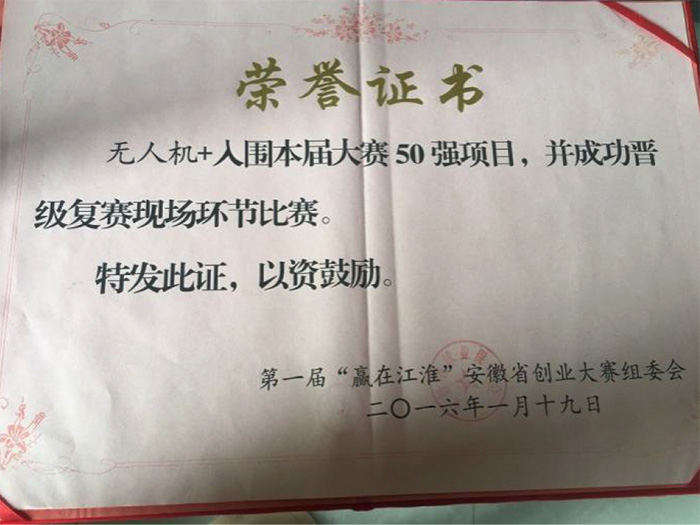 荣誉证书
无人机+入围本届大赛50强项目，并成功晋
级复赛现场环节比赛。
特发此证，以资鼓励。
第一届“赢在江淮”安徽省创业大赛组委会
二〇一六年一月十九日